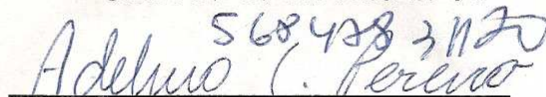 568 478 311 20
Adelmo C. Pereira